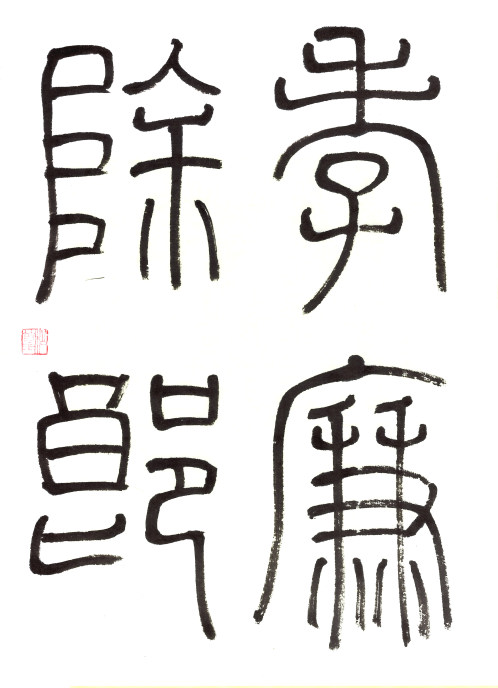 孝廉
除郎